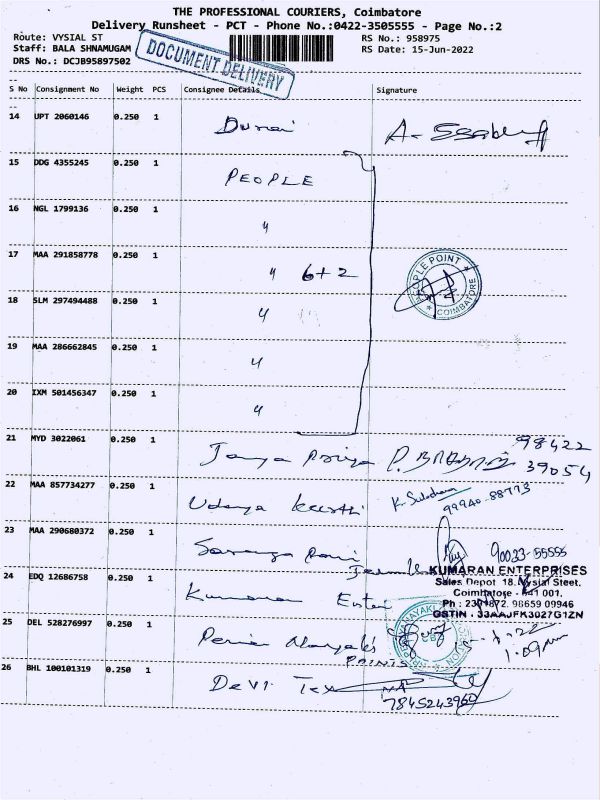 THE PROFESSIONAL COURIERS, Coimbatore
Delivery Runsheet - PCT - Phone No.:0422-3505555 - Page No.:2
Route: VYSIAL ST
RS No.: 958975
Staff: BALA SHNAMUGAM
RS Date: 15-Jun-2022
DRS No.: DCJB95897502
DOCUMENT DELIVERY
S No Consignment No Weight PCS Consignee Details Signature
14 UPT 2060146 0.250 1
15 DDG 4355245 0.250 1 PEOPLE
16 NGL 1799136 0.250 1 〃
17 MAA 291858778 0.250 1 〃 6+2
PEOPLE POINT
COIMBATORE
18 SLM 297494488 0.250 1 〃
19 MAA 286662845 0.250 1 〃
20 IXM 501456347 0.250 1 〃
21 MYD 3022061 0.250 1 98422
39054
22 MAA 857734277 0.250 1 Udaya
99940-88773
23 MAA 290680372 0.250 1
90033-55555
24 EDQ 12686758 0.250 1 Kumaran
KUMARAN ENTERPRISES
Sales Depot 18, Vysial Steet,
Coimbatore - 641 001.
98659 09946
GSTIN : 33AAJFK3027G1ZN
25 DEL 528276997 0.250 1
PRINTS
1.09
26 BHL 100101319 0.250 1 Devi Tex
7845243960